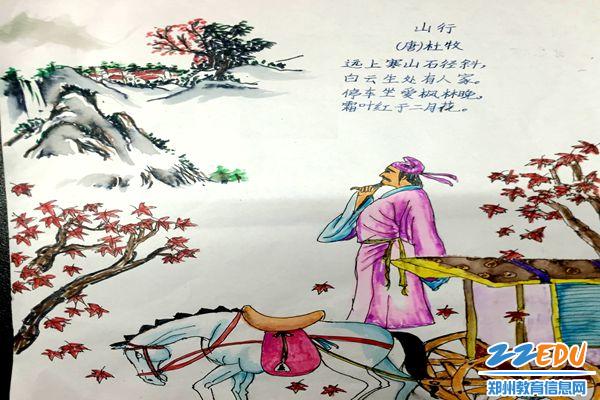 山行
(唐)杜牧
远上寒山石径斜,
白云生处有人家。
停车坐爱枫林晚,
霜叶红于二月花。
ZZEDU
郑州教育信息网